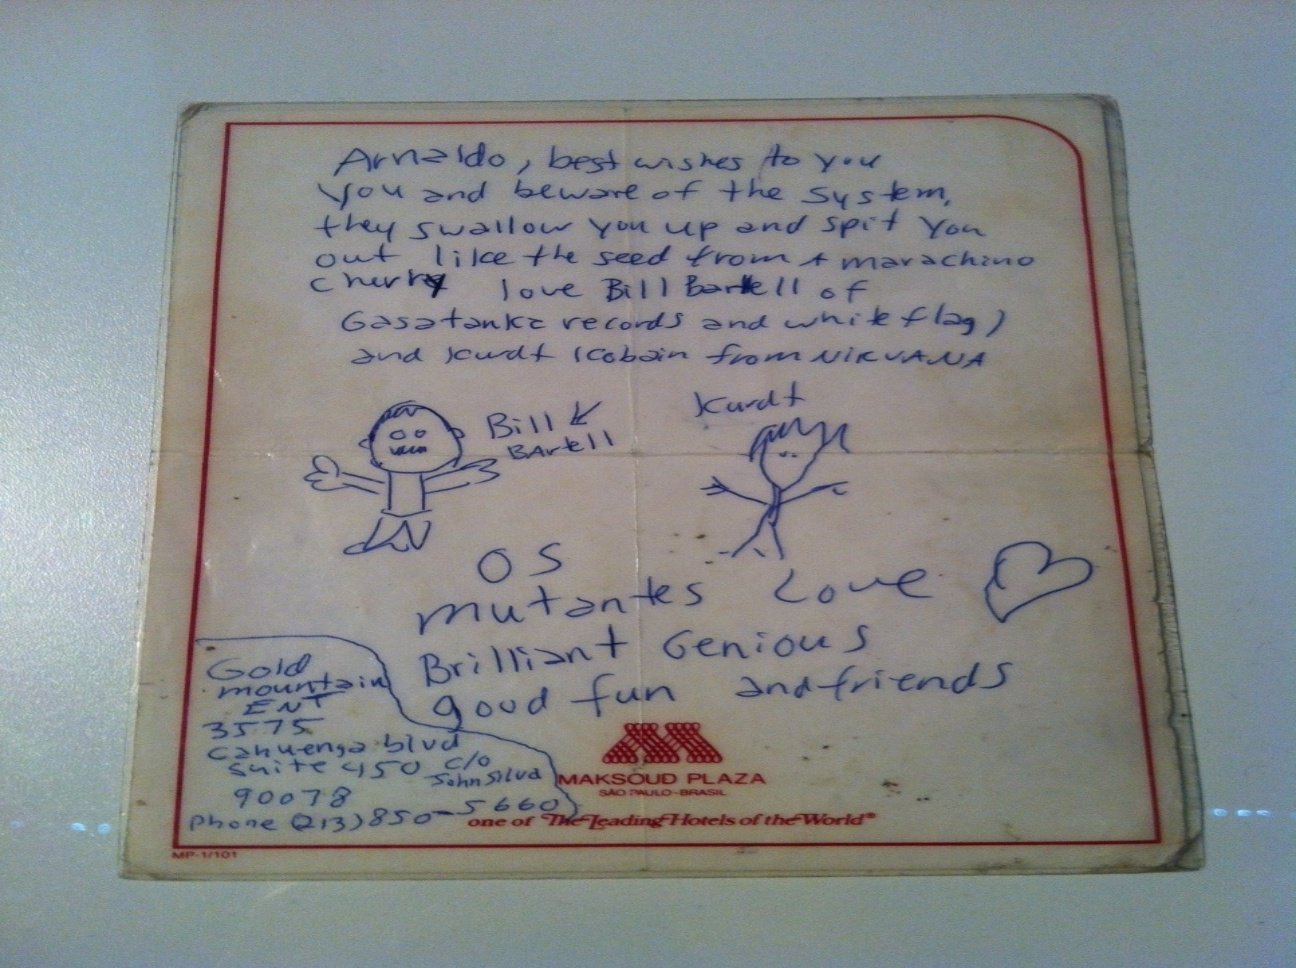 Arnaldo, best wishes to you
you and beware of the system,
they swallow you up and spit you
out like the seed from A marachino
cherry love Bill Bartell of
Gasatanka records and white flag)
and Kurdt Kobain from NIRVANA
Bill
BArtell
Kurdt
OS
mutantes Love
Brilliant Genious
good fun and friends
Gold
mountain
ENT
3575
cahuenga blvd
suite 450 c/o
John Silva
90078
Phone (213) 850-5660
MAKSOUD PLAZA
SÃO PAULO-BRASIL
one of The Leading Hotels of the World®
MP-1/101